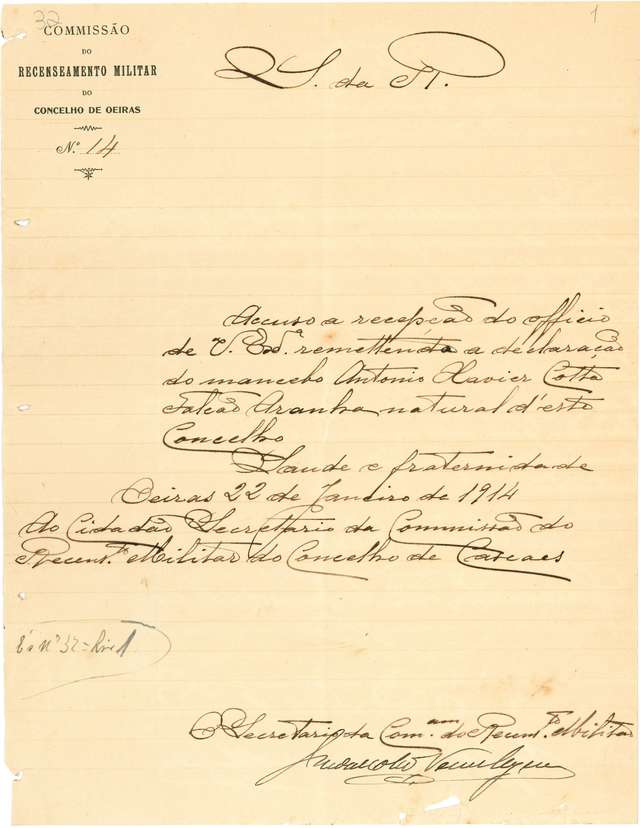 32
1
COMMISSÃO
DO
RECENSEAMENTO MILITAR
DO
CONCELHO DE OEIRAS
N.º 14
S. da R.
Accuso a recepção do officio
de V. Ex.ª remettendo a declaração
do mancebo Antonio Xavier Cotta
Falcão Aranha natural d'este
Concelho
Saude e fraternidade
Oeiras 22 de Janeiro de 1914
Ao Cidadão Secretario da Commissão do
Recens.to Militar do Concelho de Cascaes
Nº 32
O Secretario da Com.am do Recens.to Militar